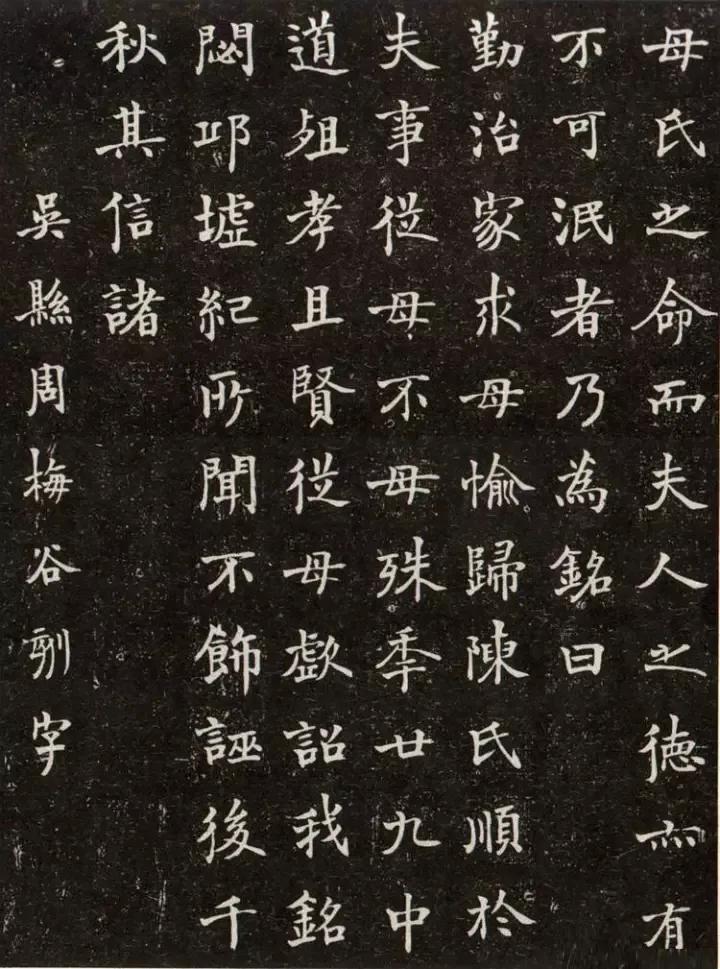 母氏之命而夫人之德亦有
不可泯者乃為銘曰
勤治家求母愉歸陳氏順於
夫事從母不母殊年廿九中
道殂孝且賢從母歔詔我銘
閟邱墟紀所聞不飾誣後千
秋其信諸
吳縣周梅谷刻字